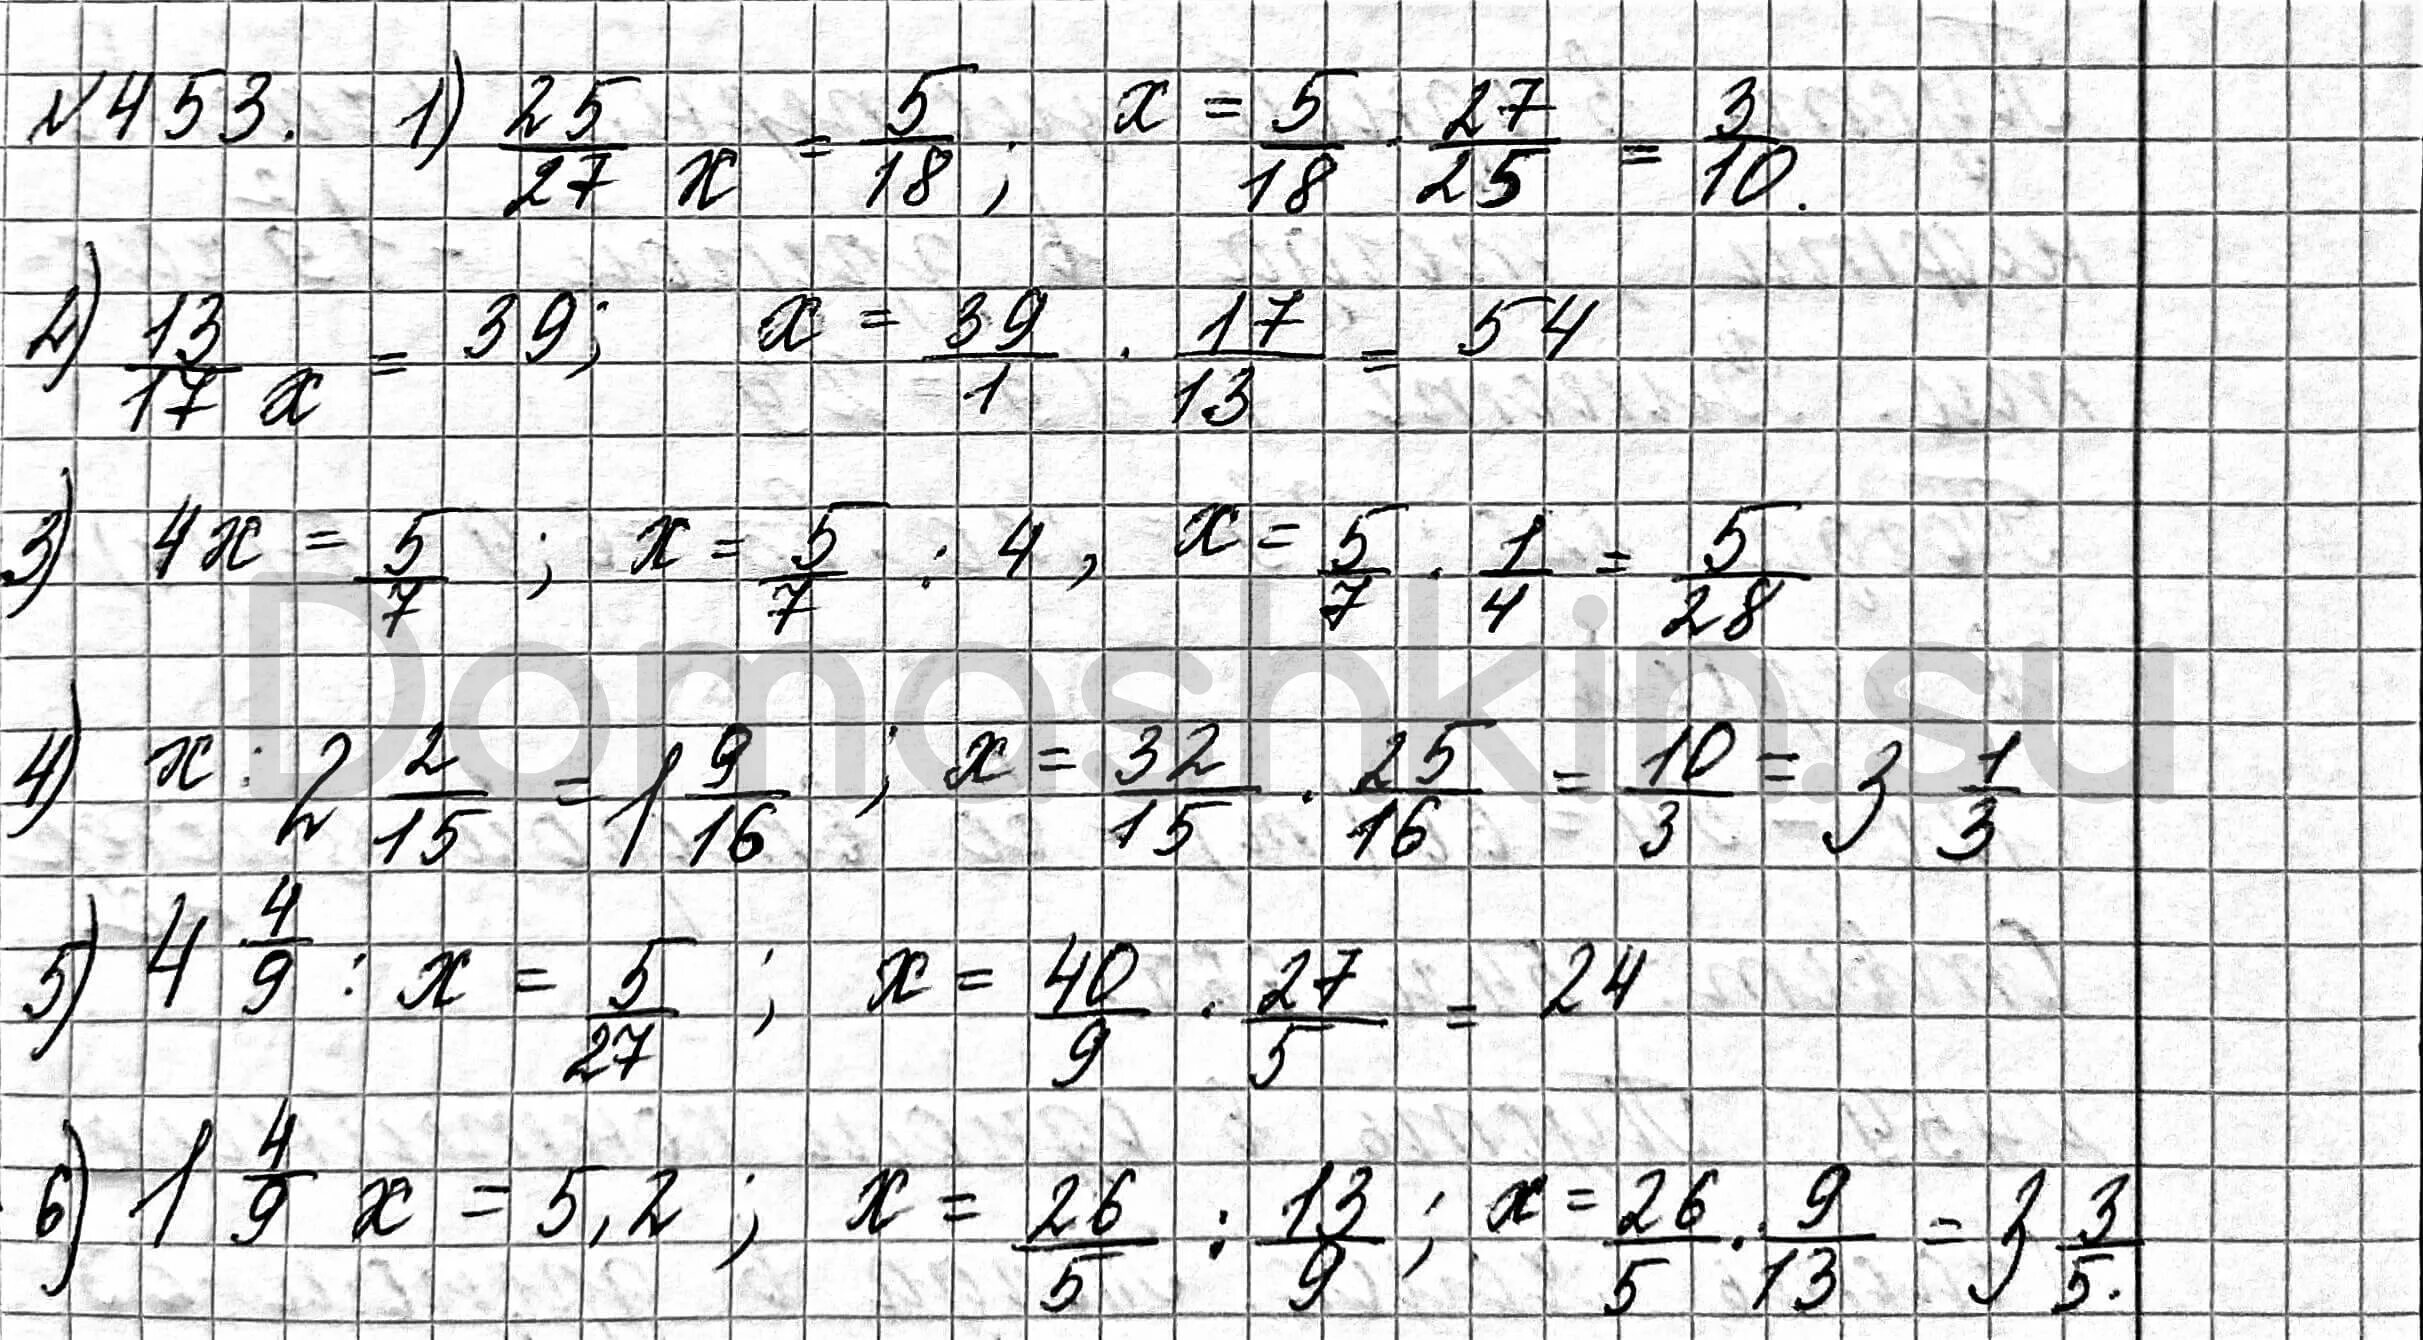 №453. 1) 25/27 x = 5/18; x = 5/18 · 27/25 = 3/10.
2) 13/17 x = 39; x = 39/1 · 17/13 = 54
3) 4x = 5/7; x = 5/7 : 4, x = 5/7 · 1/4 = 5/28
Domashkin.su
4) x : 2 2/15 = 1 9/16; x = 32/15 · 25/16 = 10/3 = 3 1/3
5) 4 4/9 : x = 5/27; x = 40/9 · 27/5 = 24
6) 1 4/9 x = 5,2; x = 26/5 : 13/9; x = 26/5 · 9/13 = 3 3/5.